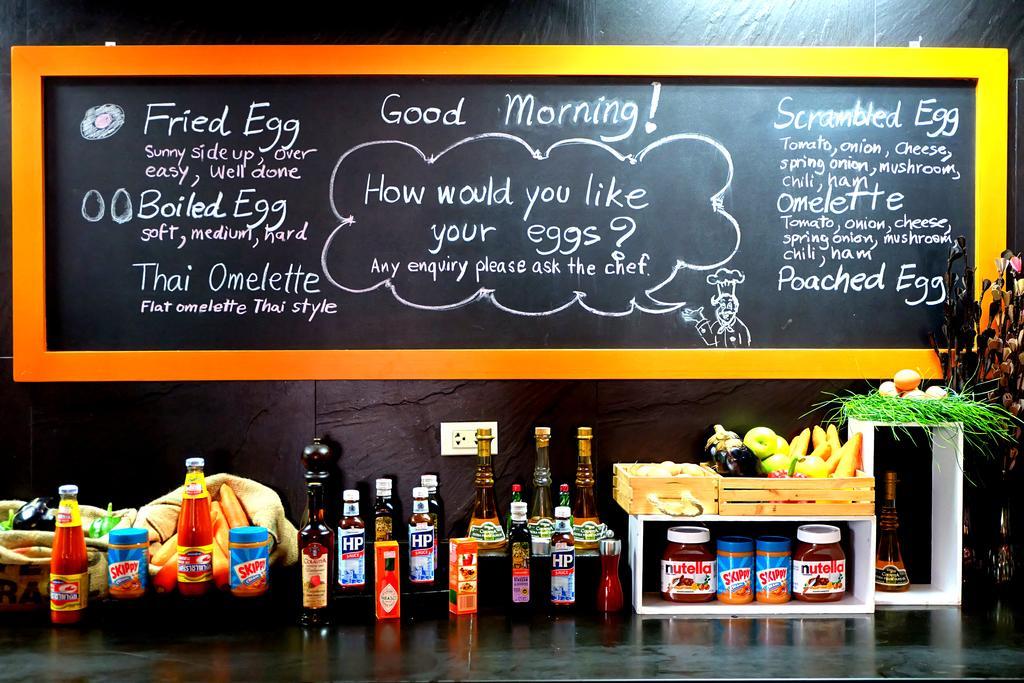 Good Morning!
Fried Egg
Sunny side up, over
easy, Well done
Boiled Egg
soft, medium, hard
Thai Omelette
Flat omelette Thai style
How would you like
your eggs?
Any enquiry please ask the chef.
Scrambled Egg
Tomato, onion, cheese,
spring onion, mushroom,
chili, ham
Omelette
Tomato, onion, cheese,
spring onion, mushroom,
chili, ham
Poached Egg
SKIPPY
SKIPPY
HP
SAUCE
TABASCO
HP
SAUCE
HP
nutella
SKIPPY
SKIPPY
nutella